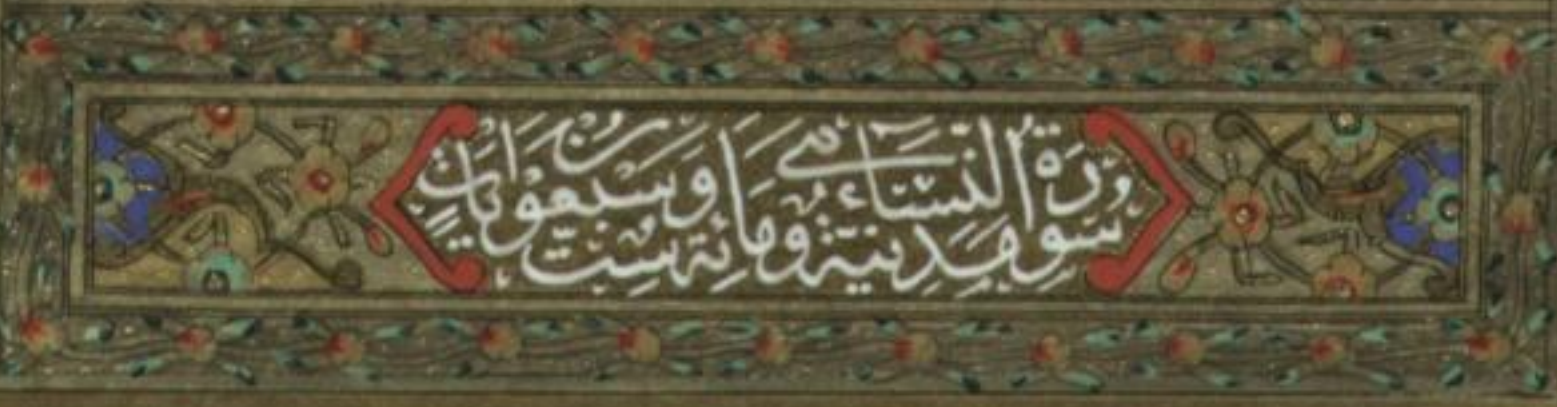 سُورَةُ النِّسَاءِ هِيَ مَدَنِيَّةٌ وَمِائَةٌ وَسِتٌّ وَسَبْعُونَ آيَاتٍ